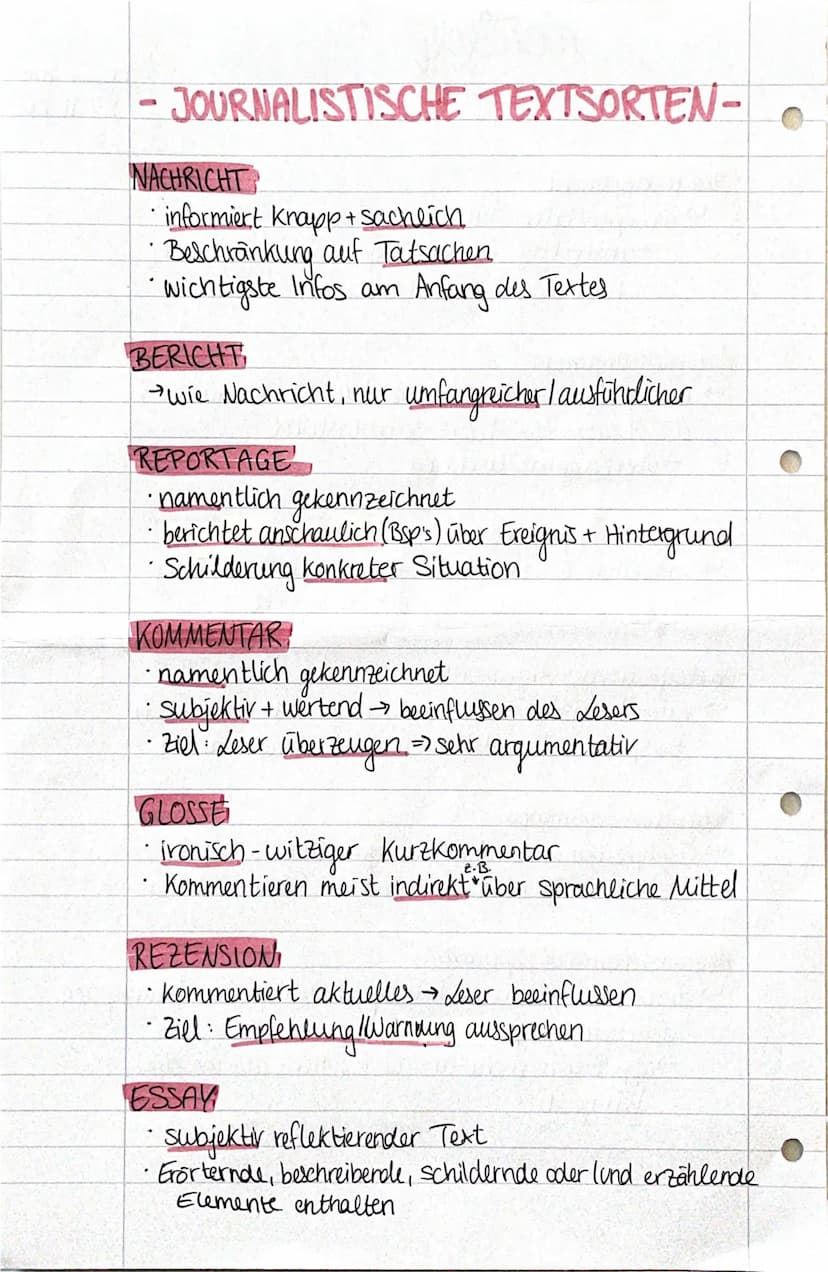 - JOURNALISTISCHE TEXTSORTEN -
NACHRICHT
· informiert knapp + sachlich
· Beschränkung auf Tatsachen
· wichtigste Infos am Anfang des Textes
BERICHT
→ wie Nachricht, nur umfangreicher/ausführlicher
REPORTAGE
· namentlich gekennzeichnet
· berichtet anschaulich (Bsp's) über Ereignis + Hintergrund
· Schilderung konkreter Situation
KOMMENTAR
· namentlich gekennzeichnet
· subjektiv + wertend → beeinflussen des Lesers
· Ziel: Leser überzeugen ⇒ sehr argumentativ
GLOSSE
· ironisch-witziger Kurzkommentar
· Kommentieren meist indirekt z.B. über sprachliche Mittel
REZENSION
· kommentiert aktuelles → Leser beeinflussen
· Ziel: Empfehlung/Warnung aussprechen
ESSAY
· subjektiv reflektierender Text
· Erörternde, beschreibende, schildernde oder/und erzählende
Elemente enthalten